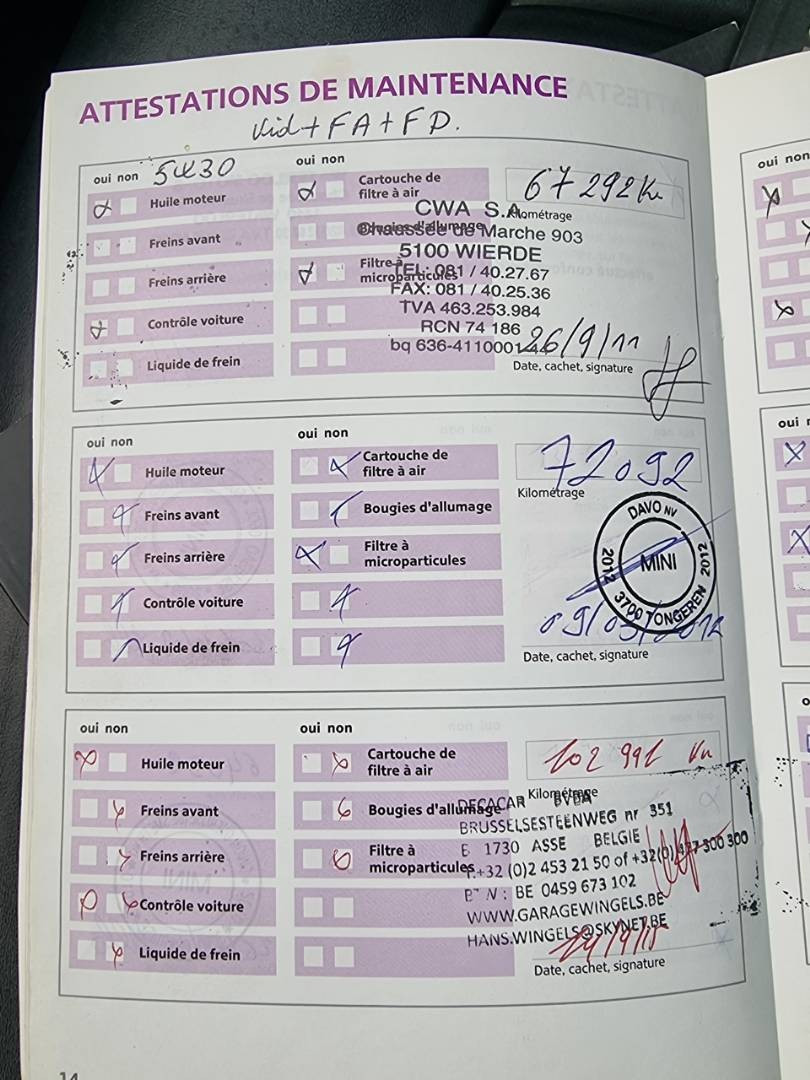 ATTESTATIONS DE MAINTENANCE
Vid + FA + FP.
oui non 5W30 oui non
Huile moteur
Cartouche de
filtre à air
67 292 Km
Kilométrage
Freins avant
Bougies d'allumage
Freins arrière
Filtre à
microparticules
Contrôle voiture
Liquide de frein
CWA S.A.
Chaussée de Marche 903
5100 WIERDE
TEL: 081 / 40.27.67
FAX: 081 / 40.25.36
TVA 463.253.984
RCN 74 186
bq 636-4110001
26/9/11
Date, cachet, signature
oui non oui non
Huile moteur
Cartouche de
filtre à air
72092
Kilométrage
Freins avant
Bougies d'allumage
Freins arrière
Filtre à
microparticules
Contrôle voiture
Liquide de frein
DAVO NV
2012 MINI 2012
3700 TONGEREN
09/03/2012
Date, cachet, signature
oui non oui non
Huile moteur
Cartouche de
filtre à air
102 991 Km
Kilométrage
Freins avant
Bougies d'allumage
Freins arrière
Filtre à
microparticules
Contrôle voiture
Liquide de frein
DECACAR BVBA
BRUSSELSESTEENWEG nr 351
B 1730 ASSE BELGIE
T.+32 (0)2 453 21 50 of +32(0)477 300 300
BTN: BE 0459 673 102
WWW.GARAGEWINGELS.BE
HANS.WINGELS@SKYNET.BE
Date, cachet, signature
14
oui non
oui